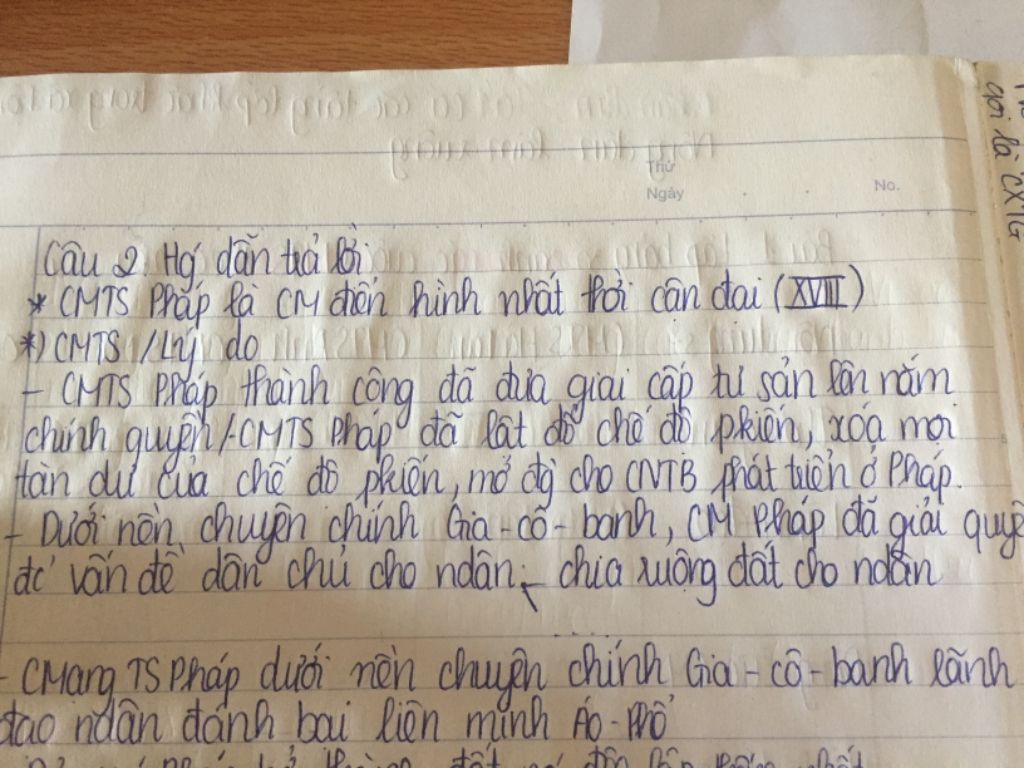 gọi là CXTG
Thứ
Ngày
No.
Câu 2 Hg' dẫn trả lời
* CMTS Pháp là CM điển hình nhất thời cận đại (XVIII)
*) CMTS / Lý do
- CMTS Pháp thành công đã đưa giai cấp tư sản lên nắm
chính quyền /-CMTS Pháp đã lật đổ chế độ pkiến, xóa mọi
tàn dư của chế độ pkiến, mở đg cho CNTB phát triển ở Pháp.
- Dưới nền chuyên chính Gia-cô-banh, CM Pháp đã giải quyế
đc' vấn đề dân chủ cho ndân; chia ruộng đất cho ndân
- CMạng TS Pháp dưới nền chuyên chính Gia-cô-banh lãnh
đạo ndân đánh bại liên minh Áo-Phổ